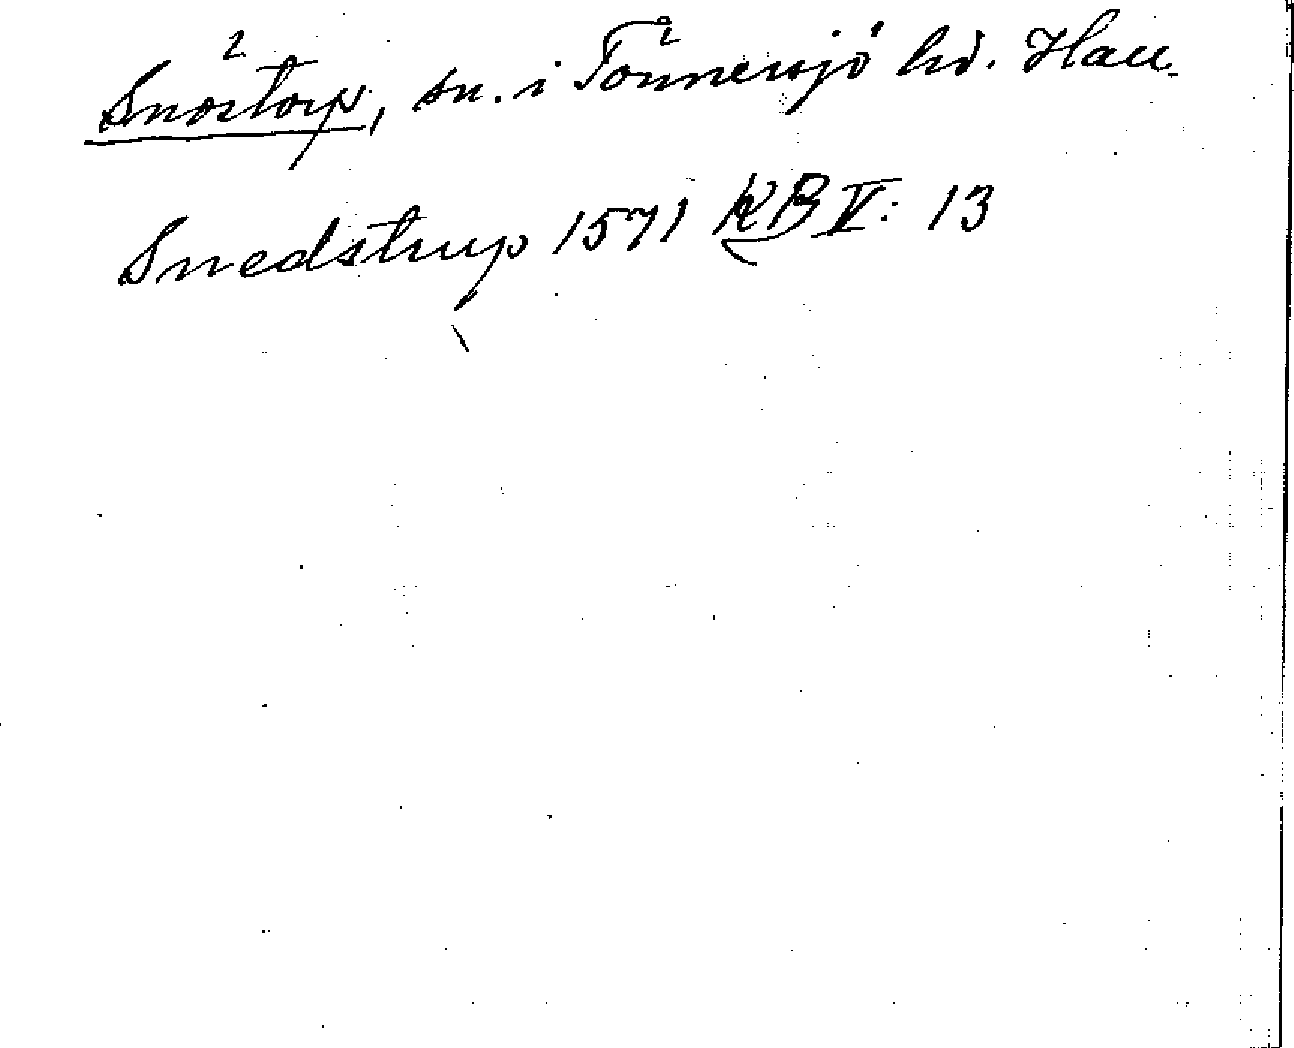 Snöstorp, sn. i Tönnersjö hd. Hall.
Snedstrup 1571 KB V: 13